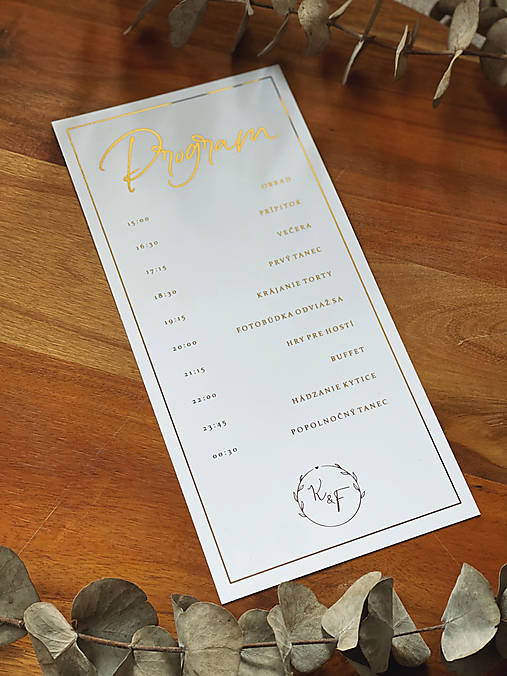 Program
15:00 OBRAD
16:30 PRÍPITOK
17:15 VEČERA
18:30 PRVÝ TANEC
19:15 KRÁJANIE TORTY
20:00 FOTOBÚDKA ODVIAŽ SA
21:15 HRY PRE HOSTÍ
22:00 BUFFET
23:45 HÁDZANIE KYTICE
00:30 POPOLNOČNÝ TANEC
K&F